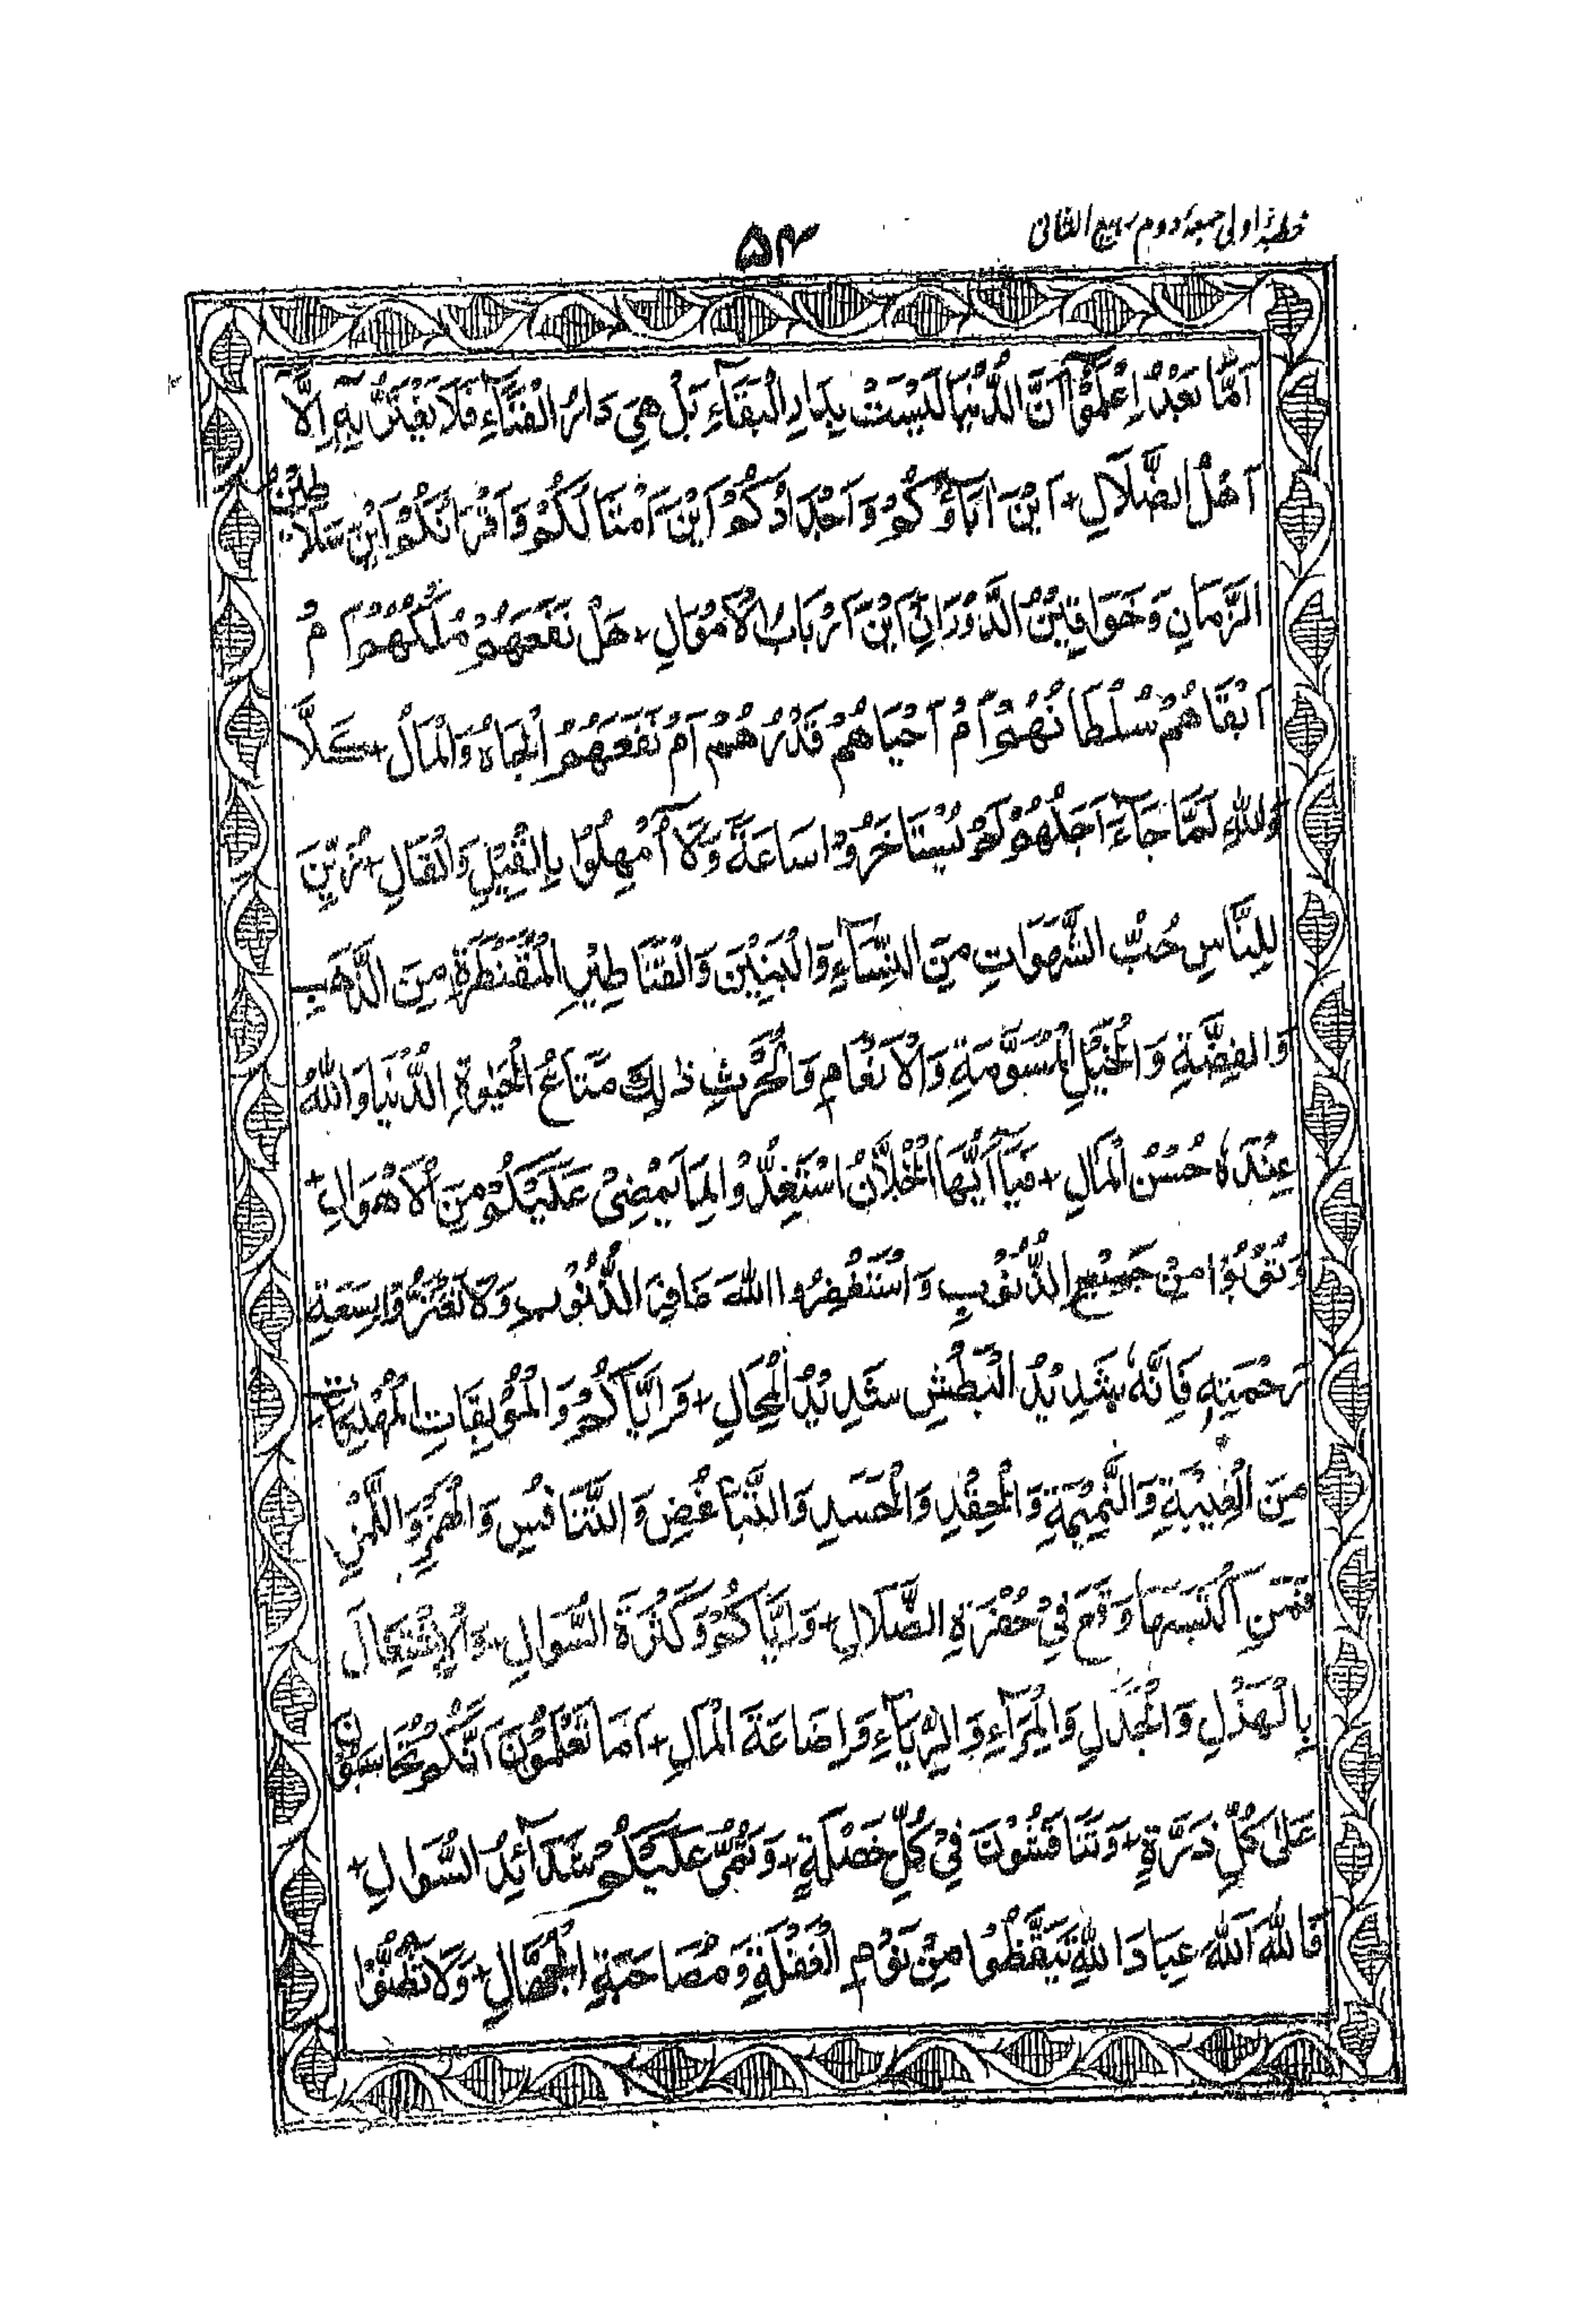 خطبۂ اولی جمعۂ دوم ربیع الثانی
۵۴
اَمَّا بَعْدُ اِعْلَمُوْآ اَنَّ الدُّنْيَا لَيْسَتْ بِدَارِ الْبَقَآءِ بَلْ هِيَ دَارُ الْفَنَآءِ فَلَا يَغْتَرُّ بِهٖٓ اِلَّا
اَهْلُ الضَّلَالِ + اَيْنَ اٰبَآؤُكُمْ وَاَجْدَادُكُمْ اَيْنَ اَمْثَالُكُمْ وَاَقْرَانُكُمْ اَيْنَ سَلَاطِيْنُ
الزَّمَانِ وَخَوَاقِيْنُ الدَّوْرَانِ اَيْنَ اَرْبَابُ الْاَمْوَالِ + هَلْ نَفَعَهُمْ مُلْكُهُمْ اَمْ
اَبْقَاهُمْ سُلْطَانُهُمْ اَمْ اَحْيَاهُمْ قَدْرُهُمْ اَمْ نَفَعَهُمُ الْجَاهُ وَالْمَالُ + كَلَّا
وَاللّٰهِ لَمَّا جَآءَ اَجَلُهُمْ لَمْ يُسْتَاخَرُوْا سَاعَةً وَّلَآ اُمْهِلُوْا بِالْقِيْلِ وَالْقَالِ + زُيِّنَ
لِلنَّاسِ حُبُّ الشَّهَوَاتِ مِنَ النِّسَآءِ وَالْبَنِيْنَ وَالْقَنَاطِيْرِ الْمُقَنْطَرَةِ مِنَ الذَّهَبِ
وَالْفِضَّةِ وَالْخَيْلِ الْمُسَوَّمَةِ وَالْاَنْعَامِ وَالْحَرْثِ ذٰلِكَ مَتَاعُ الْحَيٰوةِ الدُّنْيَا وَاللّٰهُ
عِنْدَهٗ حُسْنُ الْمَاٰلِ + فَيَآ اَيُّهَا الْخُلَّانُ اسْتَعِدُّوْا لِمَا يَمْضِيْ عَلَيْكُمْ مِنَ الْاَهْوَالِ +
وَتُوْبُوْا مِنْ جَمِيْعِ الذُّنُوْبِ وَاسْتَغْفِرُوا اللّٰهَ غَافِرَ الذُّنُوْبِ وَلَا تَغْتَرُّوْا بِسَعَةِ
رَحْمَتِهٖ فَاِنَّهٗ شَدِيْدُ الْبَطْشِ شَدِيْدُ الْمِحَالِ + وَاِيَّاكُمْ وَالْمُوْبِقَاتِ الْمُهْلِكَاتِ
مِنَ الْغِيْبَةِ وَالنَّمِيْمَةِ وَالْحِقْدِ وَالْحَسَدِ وَالتَّبَاغُضِ وَالتَّنَافُسِ وَالْهَمْزِ وَاللَّمْزِ
فَمَنِ اكْتَسَبَهَا وَقَعَ فِيْ حُفْرَةِ الضَّلَالِ + وَاِيَّاكُمْ وَكَثْرَةَ السُّوَالِ + وَالْاِشْتِغَالَ
بِالْهَزْلِ وَالْجَدَلِ وَالْمِرَآءِ وَالرِّيَآءِ وَاِضَاعَةَ الْمَالِ + اَمَا تَعْلَمُوْنَ اَنَّكُمْ تُحَاسَبُوْنَ
عَلٰى كُلِّ ذَرَّةٍ + وَتُنَاقَشُوْنَ فِيْ كُلِّ خَصْلَةٍ + وَتَمُرُّ عَلَيْكُمْ شَدَآئِدُ السُّوَالِ +
فَاللّٰهَ اَللّٰهَ عِبَادَ اللّٰهِ تَيَقَّظُوْا مِنْ نَوْمِ الْغَفْلَةِ وَمُصَاحَبَةِ الْجُهَّالِ + وَلَا تَظُنُّوْا